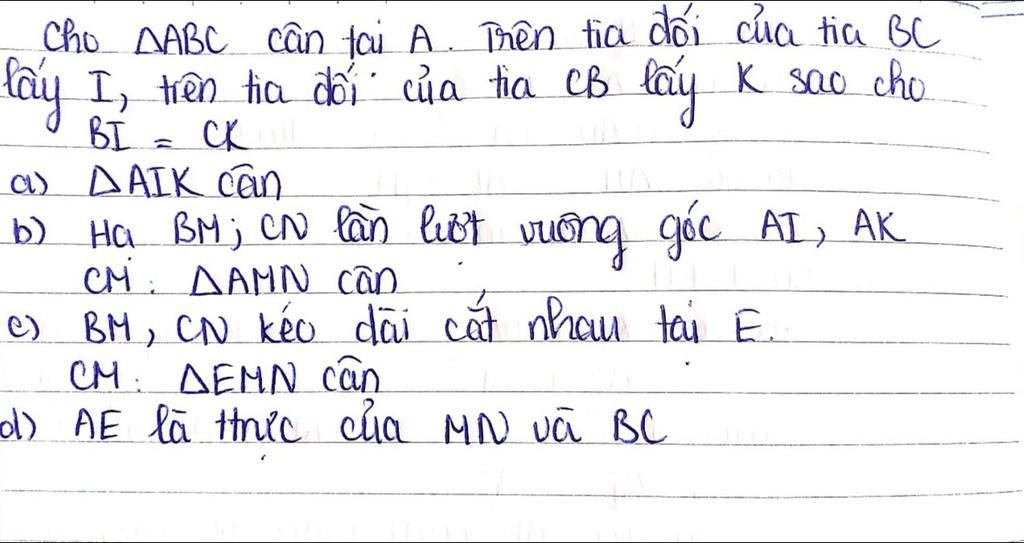 Cho ΔABC cân tại A. Trên tia đối của tia BC
lấy I, trên tia đối của tia CB lấy K sao cho
BI = CK
a) ΔAIK cân
b) Hạ BM; CN lần lượt vuông góc AI, AK
CM: ΔAMN cân
c) BM, CN kéo dài cắt nhau tại E.
CM: ΔEMN cân
d) AE là ttrực của MN và BC